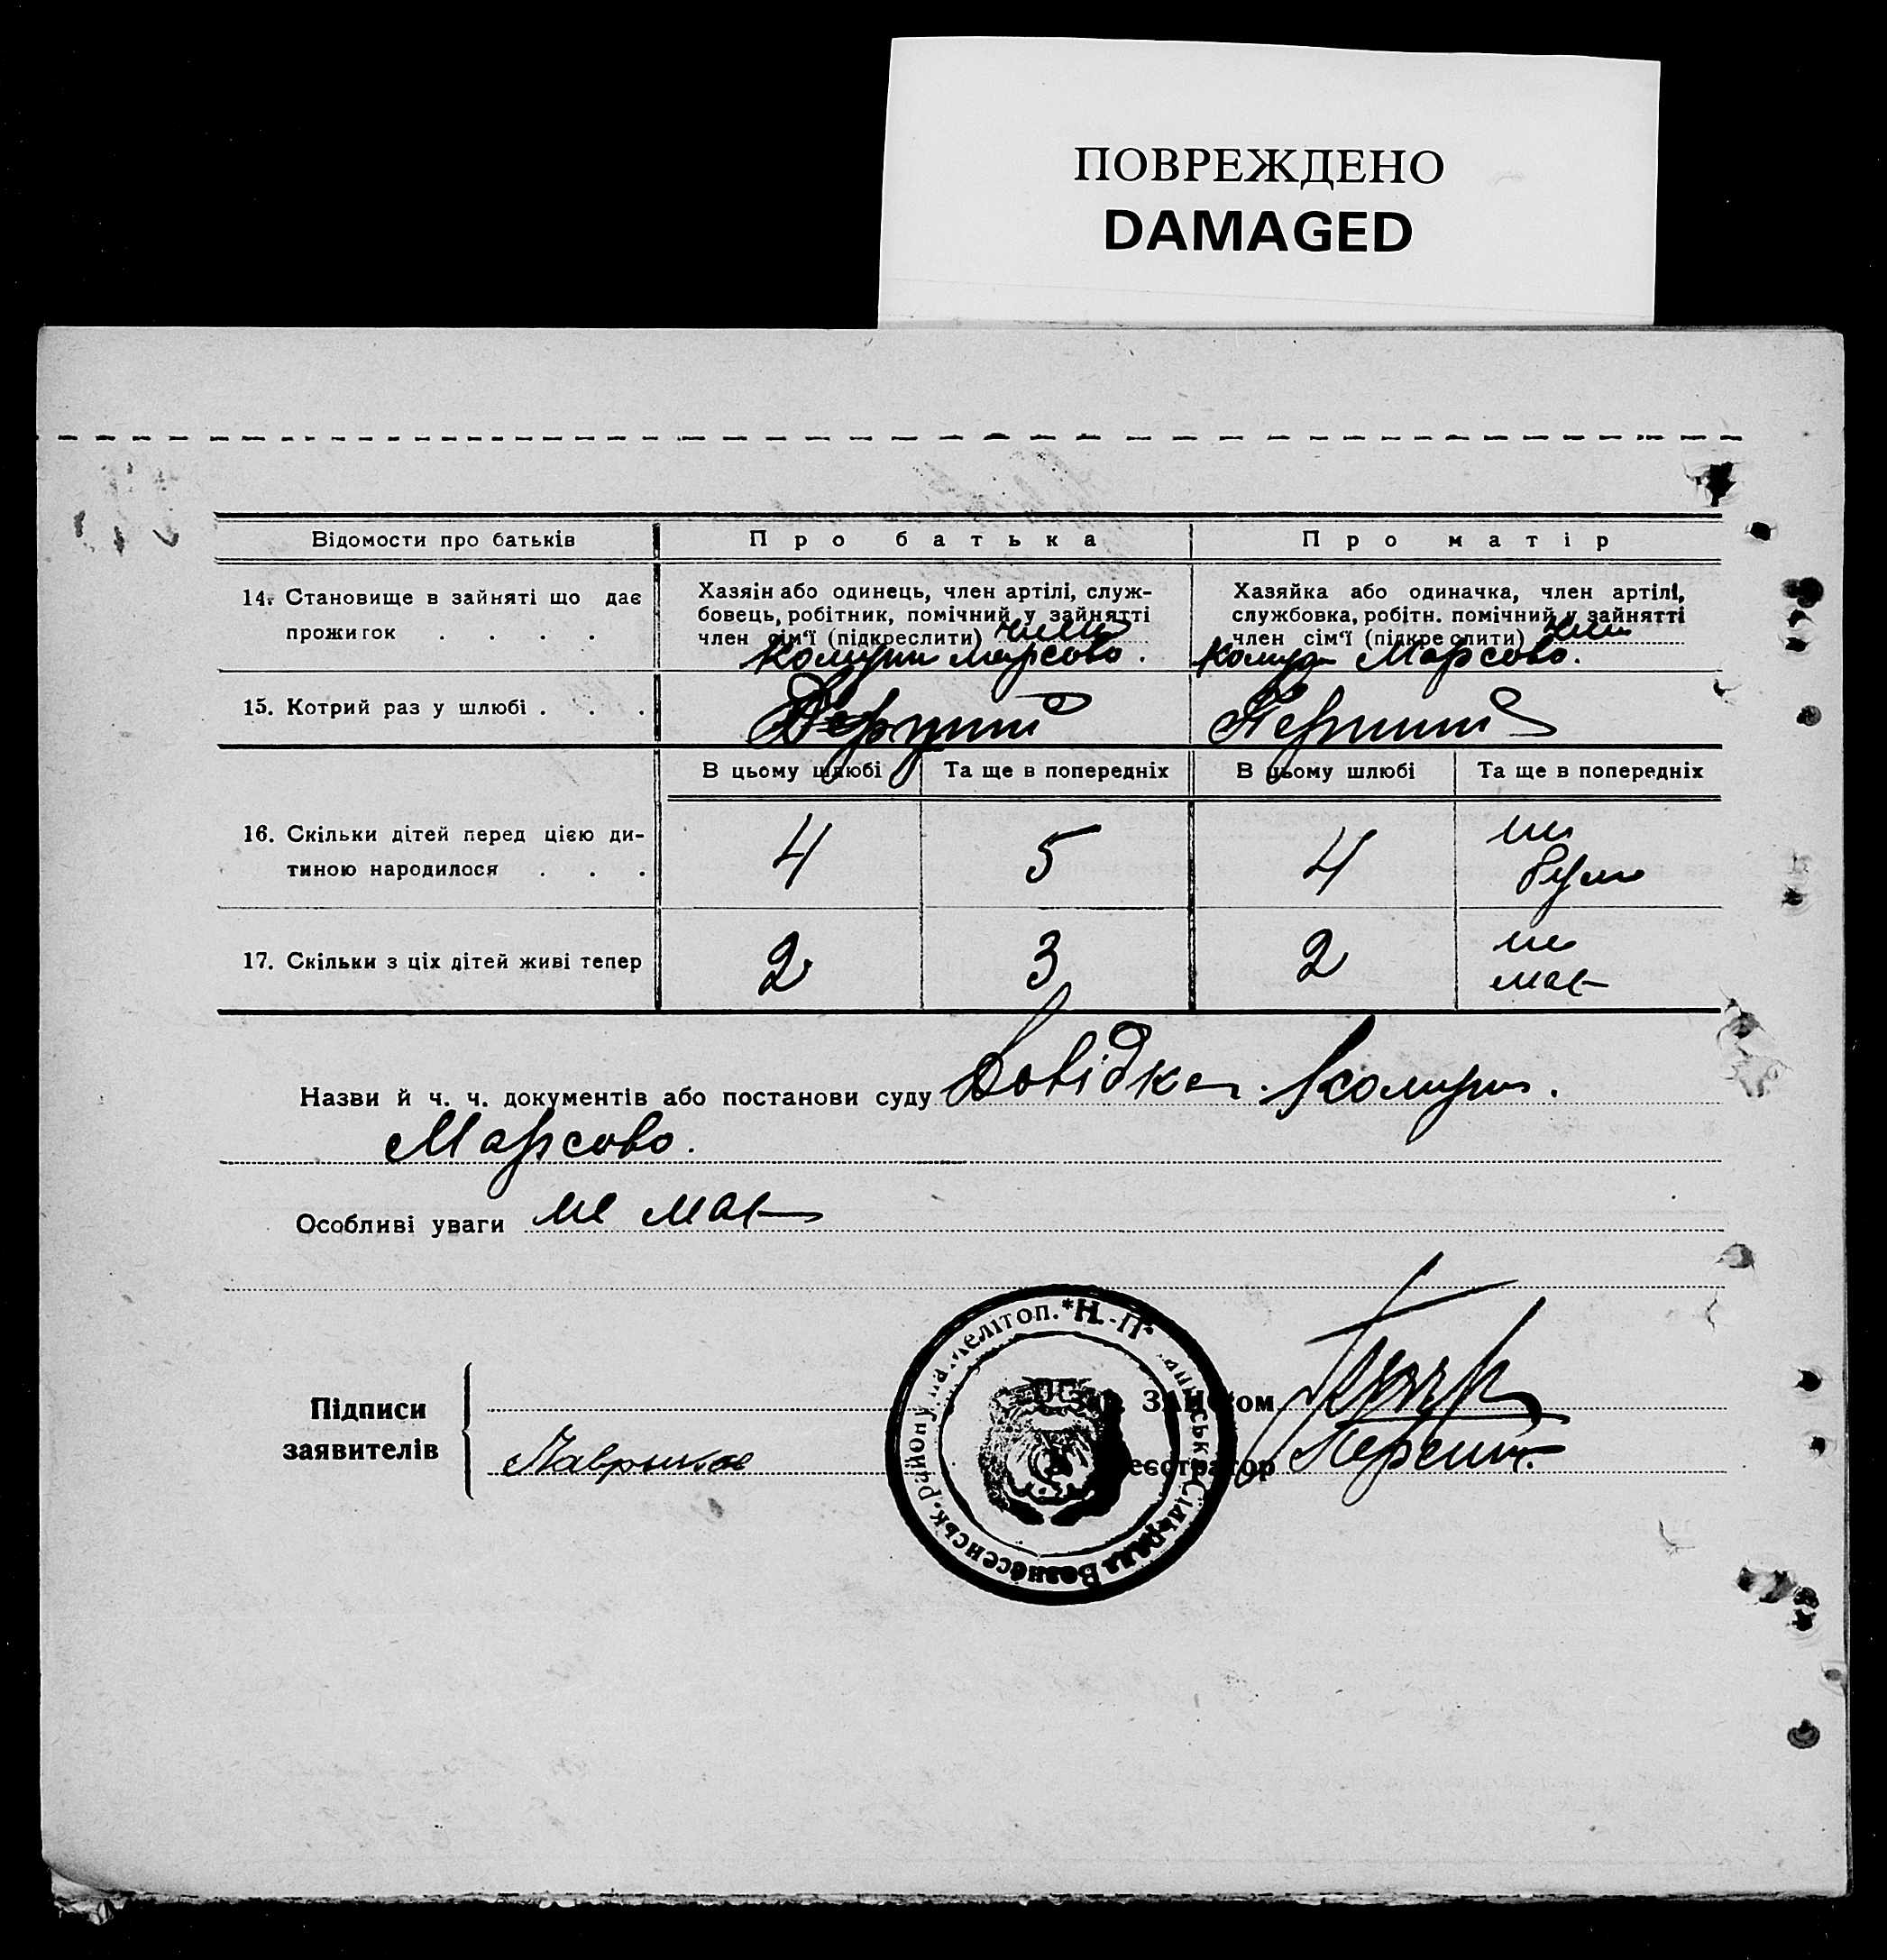 ПОВРЕЖДЕНО
DAMAGED
Відомости про батьків
Про батька
Про матір
14. Становище в зайняті що дає
прожиток . . . .
Хазяін або одинець, член артілі, служ-
бовець, робітник, помічний у зайнятті
член сім'ї (підкреслити) член
Комуни Марсово.
Хазяйка або одиначка, член артілі,
службовка, робітн. помічний у зайнятті
член сім'ї (підкреслити) член
Комуни Марсово.
15. Котрий раз у шлюбі . . .
Перший
В цьому шлюбі
Та ще в попередніх
В цьому шлюбі
Та ще в попередніх
16. Скільки дітей перед цією ди-
тиною народилося . . .
4
5
4
не
було
17. Скільки з ціх дітей живі тепер
2
3
2
не
має
Назви й ч. ч. документів або постанови суду Довідка Комуни.
Марсово.
Особливі уваги не має
Підписи
заявителів
Зав. ЗАГС'ом
Реєстратор
Сільрада Вознесенськ. району на Мелітоп. *Н.-П